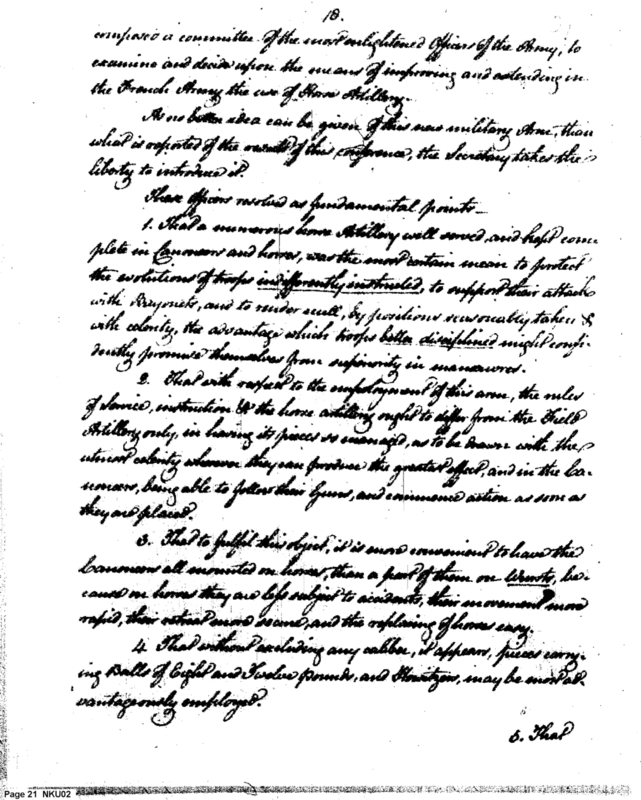 18.
composed a committee of the most enlightened Officers of the Army, to
examine and decide upon the means of improving and extending in
the French Army the use of Horse Artillery.
As no better idea can be given of this new military Arm, than
what is reported of the result of this conference, the Secretary takes the
liberty to introduce it.
These officers resolved as fundamental points—
1. That a numerous horse Artillery well served, and kept com-
plete in Canoneers and horses, was the most certain mean to protect
the evolutions of troops indifferently instructed, to support their attack
with Bayonets, and to render null, by positions seasonably taken &
with celerity, the advantage which troops better disciplined might confi-
dently promise themselves from superiority in manœuvres.
2. That with respect to the employment of this arm, the rules
of Service, instruction &c the horse artillery ought to differ from the Field
Artillery only, in having its pieces so managed, as to be drawn with the
utmost celerity wherever they can produce the greatest effect, and in the Ca-
noneers, being able to follow their Guns, and commence action as soon as
they are placed.
3. That to fulfil this object, it is more convenient to have the
Canoneers all mounted on horses, than a part of them on Wursts, be-
cause on horses they are less subject to accidents, their movement more
rapid, their retreat more secure, and the replacing of horses easy.
4. That without excluding any caliber, it appears, pieces carry-
ing Balls of Eight and Twelve Pounds, and Howitzers, may be most ad-
vantageously employed.
5. That
Page 21 NKU02